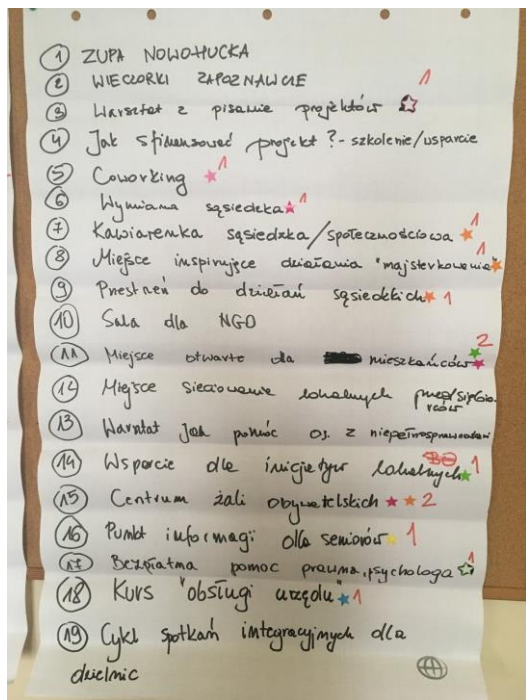 1 ZUPA NOWOHUCKA
2 WIECZORKI ZAPOZNAWCZE
1
3 Warsztat z pisanie projektów
4 Jak sfinansować projekt? - szkolenie/wsparcie
5 Coworking 1
6 Wymiana sąsiedzka 1
7 Kawiarenka sąsiedzka/społecznościowa 1
8 Miejsce inspirujące działania "majsterkowania" 1
9 Przestrzeń do działań sąsiedzkich 1
10 Sala dla NGO
2
11 Miejsce otwarte dla mieszkańców
12 Miejsce sieciowania lokalnych przedsiębiorców
13 Warsztat jak pomóc os. z niepełnosprawnościami
14 Wsparcie dla inicjatyw lokalnych 1
15 Centrum żali obywatelskich 2
16 Punkt informacji dla seniorów 1
17 Bezpłatna pomoc prawna, psychologa 1
18 Kurs "obsługi urzędu" 1
19 Cykl spotkań integracyjnych dla
dzielnic